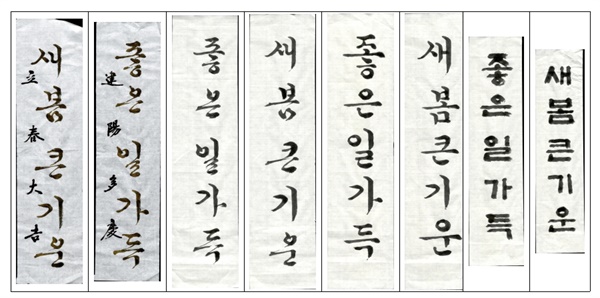 새봄큰기운
立春大吉
좋은일가득
建陽多慶
좋은일가득
새봄큰기운
좋은일가득
새봄큰기운
좋은일가득
새봄큰기운